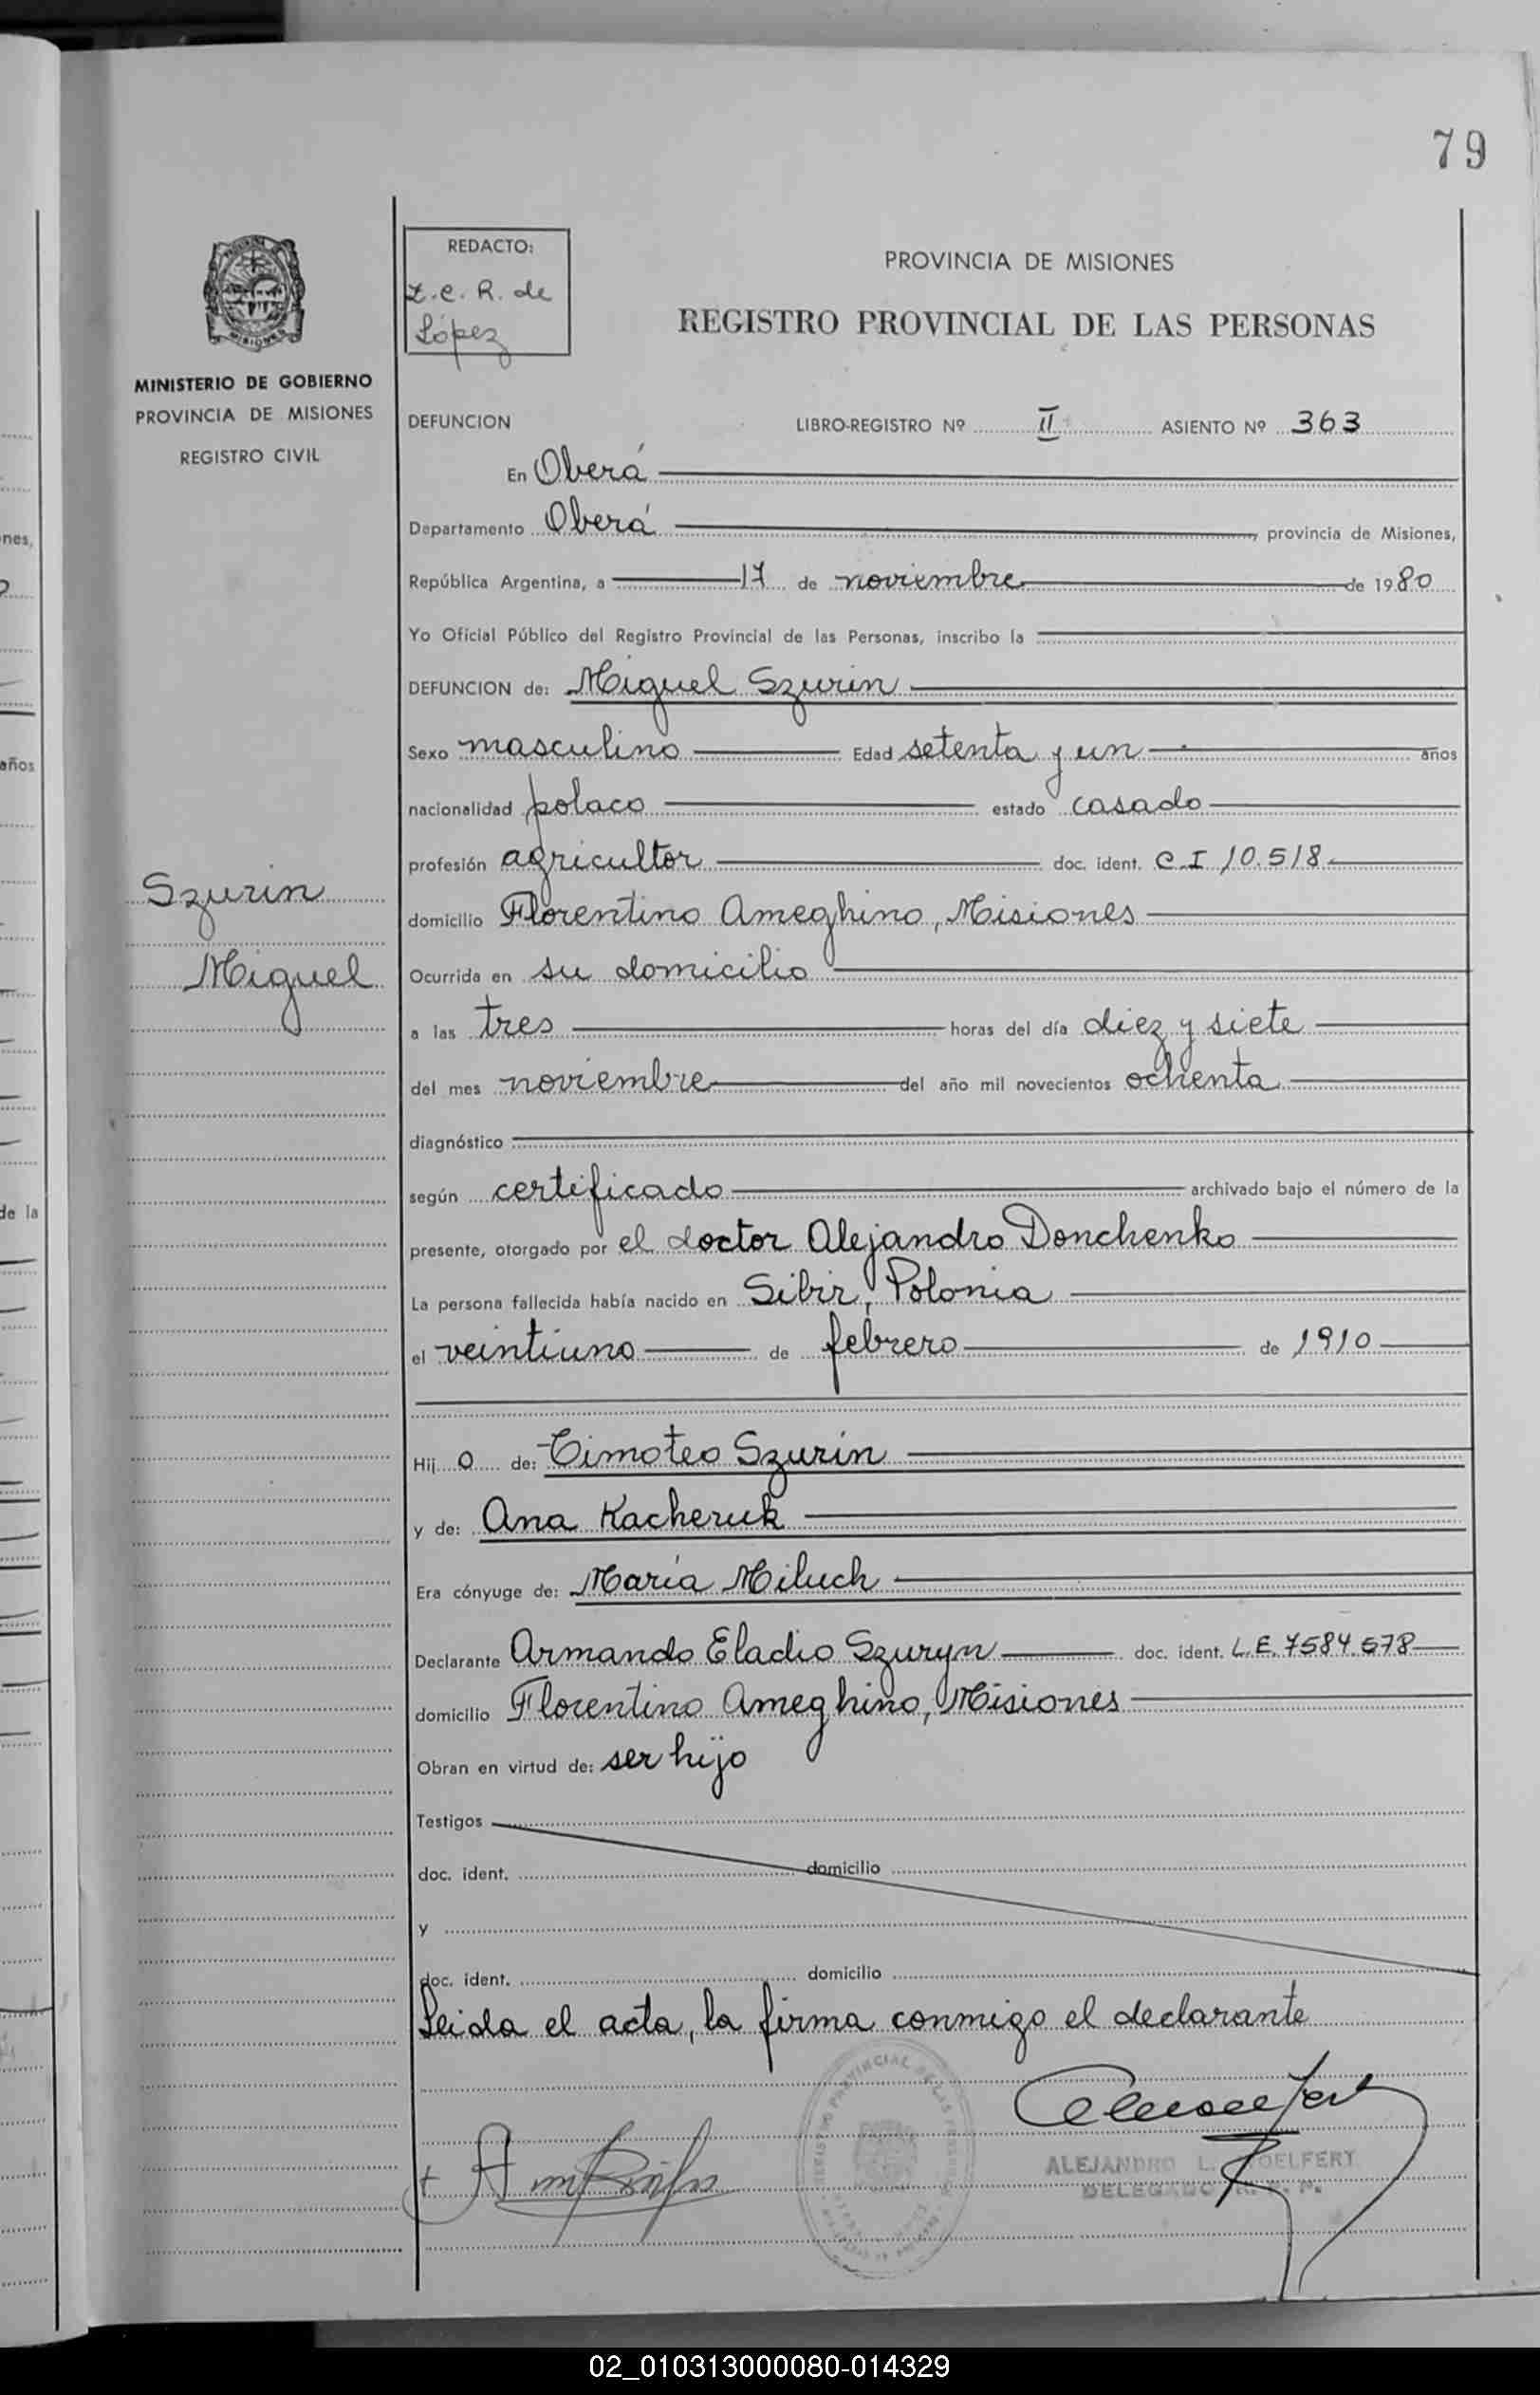 79
REDACTO:
Z.C.R. de
López
PROVINCIA DE MISIONES
REGISTRO PROVINCIAL DE LAS PERSONAS
MISIONES
MINISTERIO DE GOBIERNO
PROVINCIA DE MISIONES
REGISTRO CIVIL
DEFUNCION LIBRO-REGISTRO Nº II ASIENTO Nº 363
En Oberá
Departamento Oberá, provincia de Misiones,
República Argentina, a 17 de noviembre de 1980
Yo Oficial Público del Registro Provincial de las Personas, inscribo la
DEFUNCION de: Miguel Szurin
Sexo masculino Edad setenta y un años
nacionalidad polaco estado casado
profesión agricultor doc. ident. C.I 10.518
Szurin
Miguel
domicilio Florentino Ameghino, Misiones
Ocurrida en su domicilio
a las tres horas del día diez y siete
del mes noviembre del año mil novecientos ochenta
diagnóstico
según certificado archivado bajo el número de la
presente, otorgado por el doctor Alejandro Donchenko
La persona fallecida había nacido en Sibir, Polonia
el veintiuno de febrero de 1910
Hij o de: Timoteo Szurin
y de: Ana Kacheruk
Era cónyuge de: María Miluch
Declarante Armando Eladio Szuryn doc. ident. L.E. 7584.578
domicilio Florentino Ameghino, Misiones
Obran en virtud de: ser hijo
Testigos
doc. ident. domicilio
y
doc. ident. domicilio
Leida el acta, la firma conmigo el declarante
REGISTRO PROVINCIAL DE LAS PERSONAS
ALEJANDRO L. OELFERT
DELEGADO R. P. P.
nes,
años
de la
02_010313000080-014329